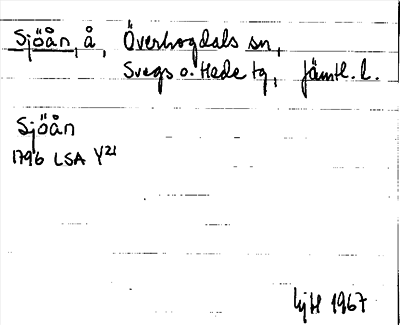 Sjöån, å, Överhogdals sn,
Svegs o. Hede tg, Jämtl. l.
Sjöån
1796 LSA Y21
LjH 1967